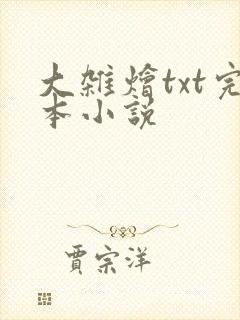 大雜燴txt完
本小說
賈宗洋